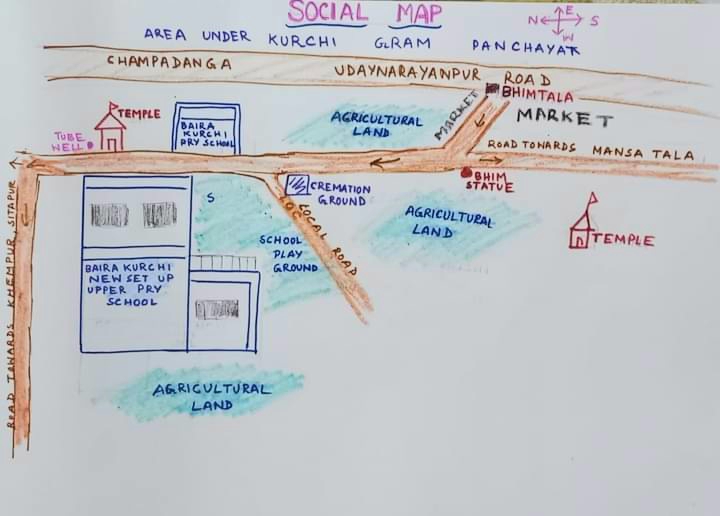 SOCIAL MAP
E
N S
W
AREA UNDER KURCHI GRAM PANCHAYAT
CHAMPADANGA
UDAYNARAYANPUR ROAD
BHIMTALA
MARKET
MARKET
TEMPLE
TUBE
WELL
BAIRA
KURCHI
PRY SCHOOL
AGRICULTURAL
LAND
ROAD TOWARDS MANSA TALA
BHIM
STATUE
CREMATION
GROUND
S
LOC LOCAL ROAD
SCHOOL
PLAY
GROUND
AGRICULTURAL
LAND
TEMPLE
BAIRA KURCHI
NEW SET UP
UPPER PRY
SCHOOL
ROAD TOWARDS KHEMPUR, SITAPUR
AGRICULTURAL
LAND